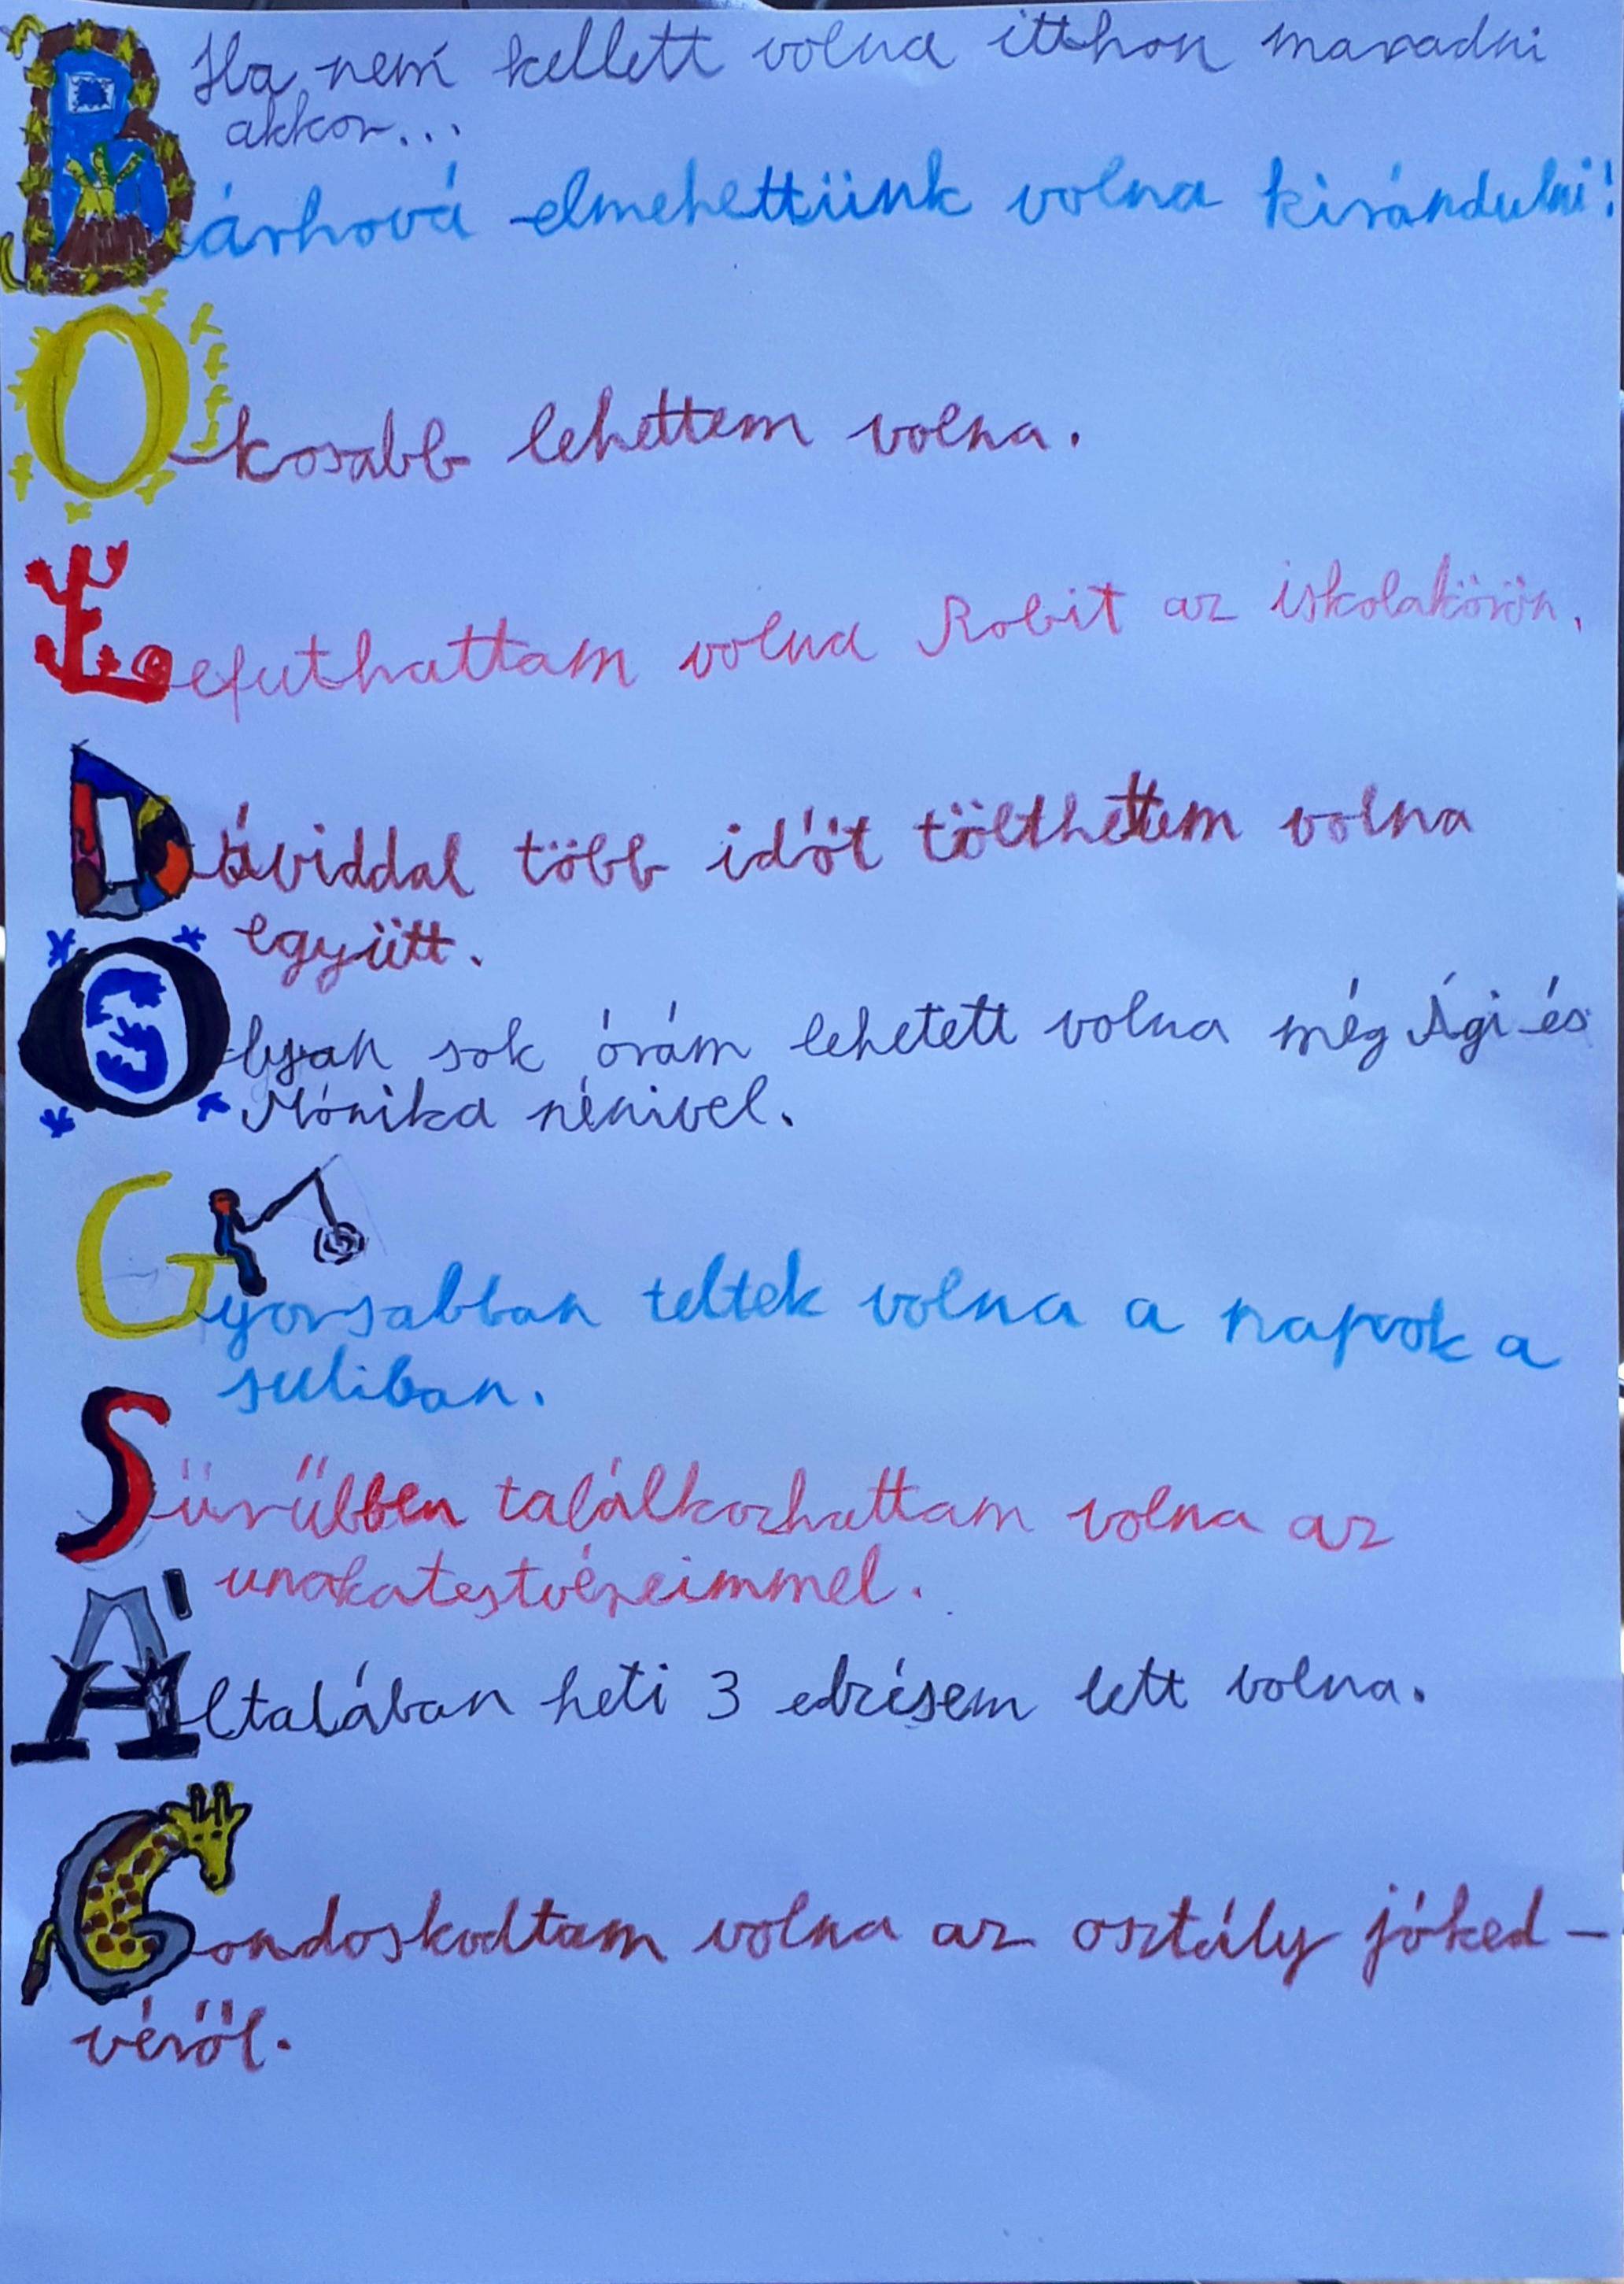 Ha nem kellett volna itthon maradni
akkor...
Bárhová elmehettünk volna kirándulni!
Okosabb lehettem volna.
Lefuthattam volna Robit az iskolakörön.
Dáviddal több időt tölthettem volna
együtt.
Olyan sok órám lehetett volna még Ági és
Mónika nénivel.
Gyorsabban teltek volna a napok a
suliban.
Sűrűbben találkozhattam volna az
unokatestvéreimmel.
Általában heti 3 edzésem lett volna.
Gondoskodtam volna az osztály jóked-
véről.